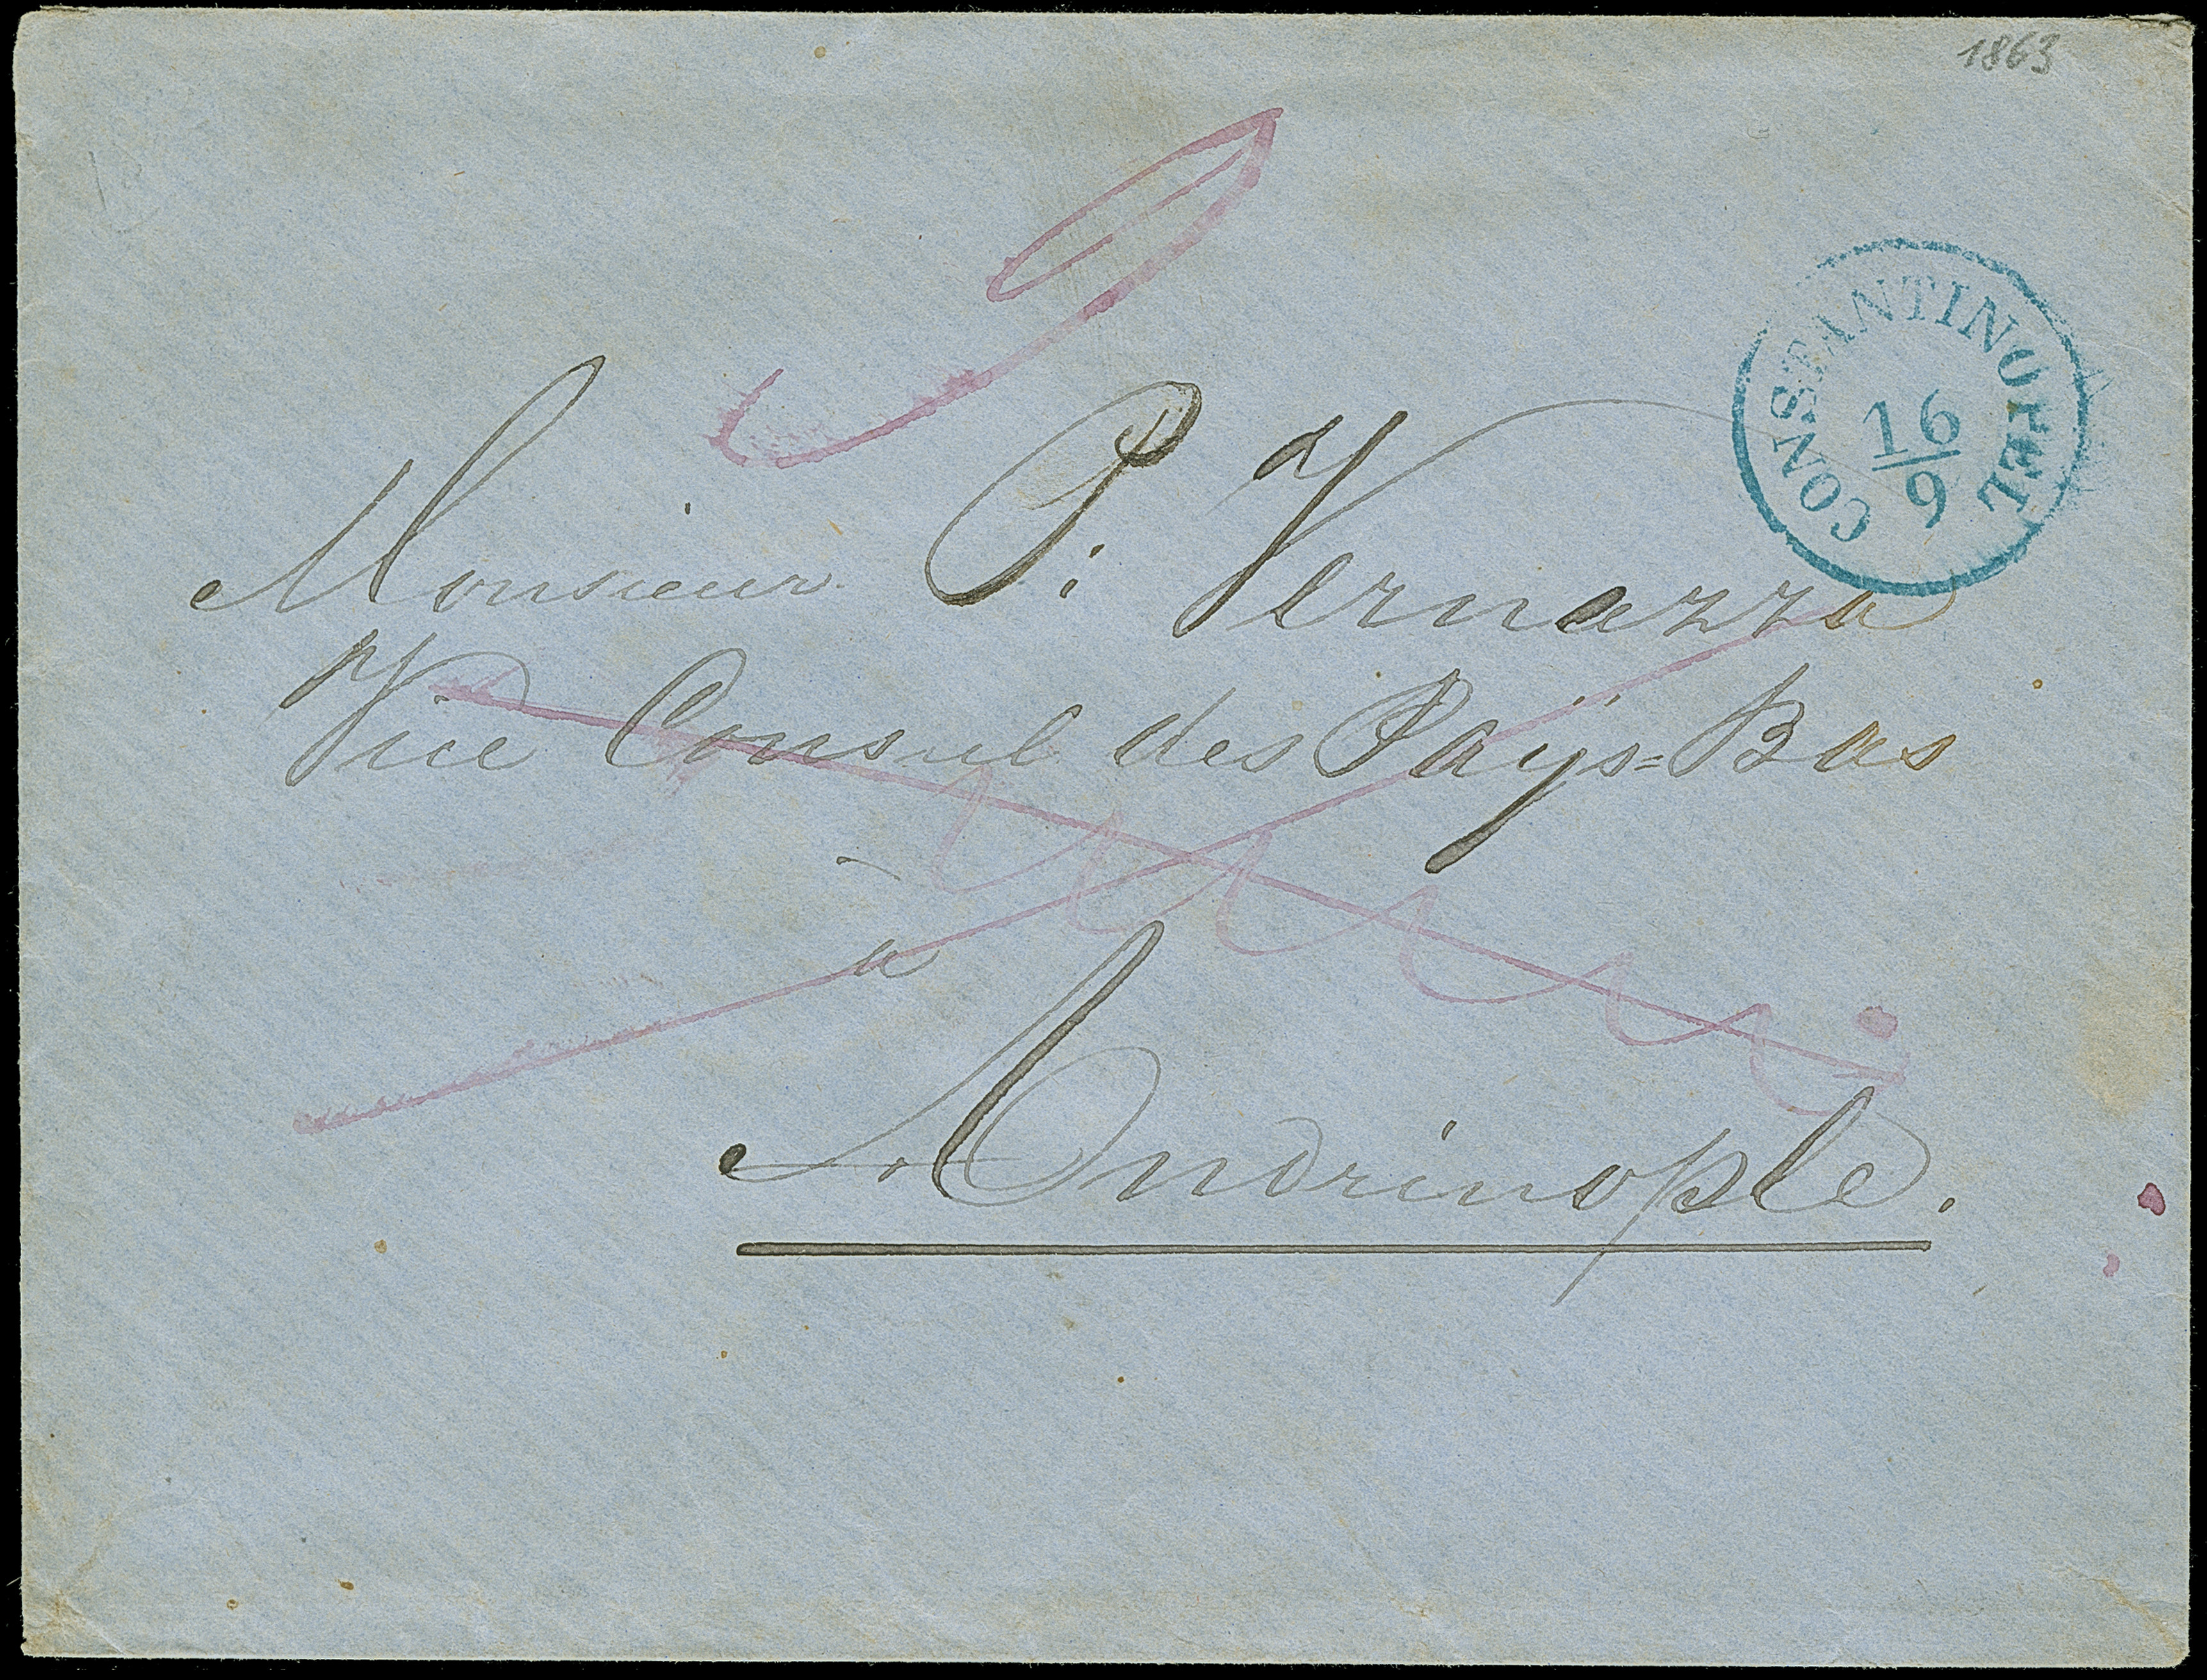 1863
CONSTANTINOPEL
16
9
Monsieur P. Vernazza
Vice Consul des Paÿs=Bas
à
Andrinople.